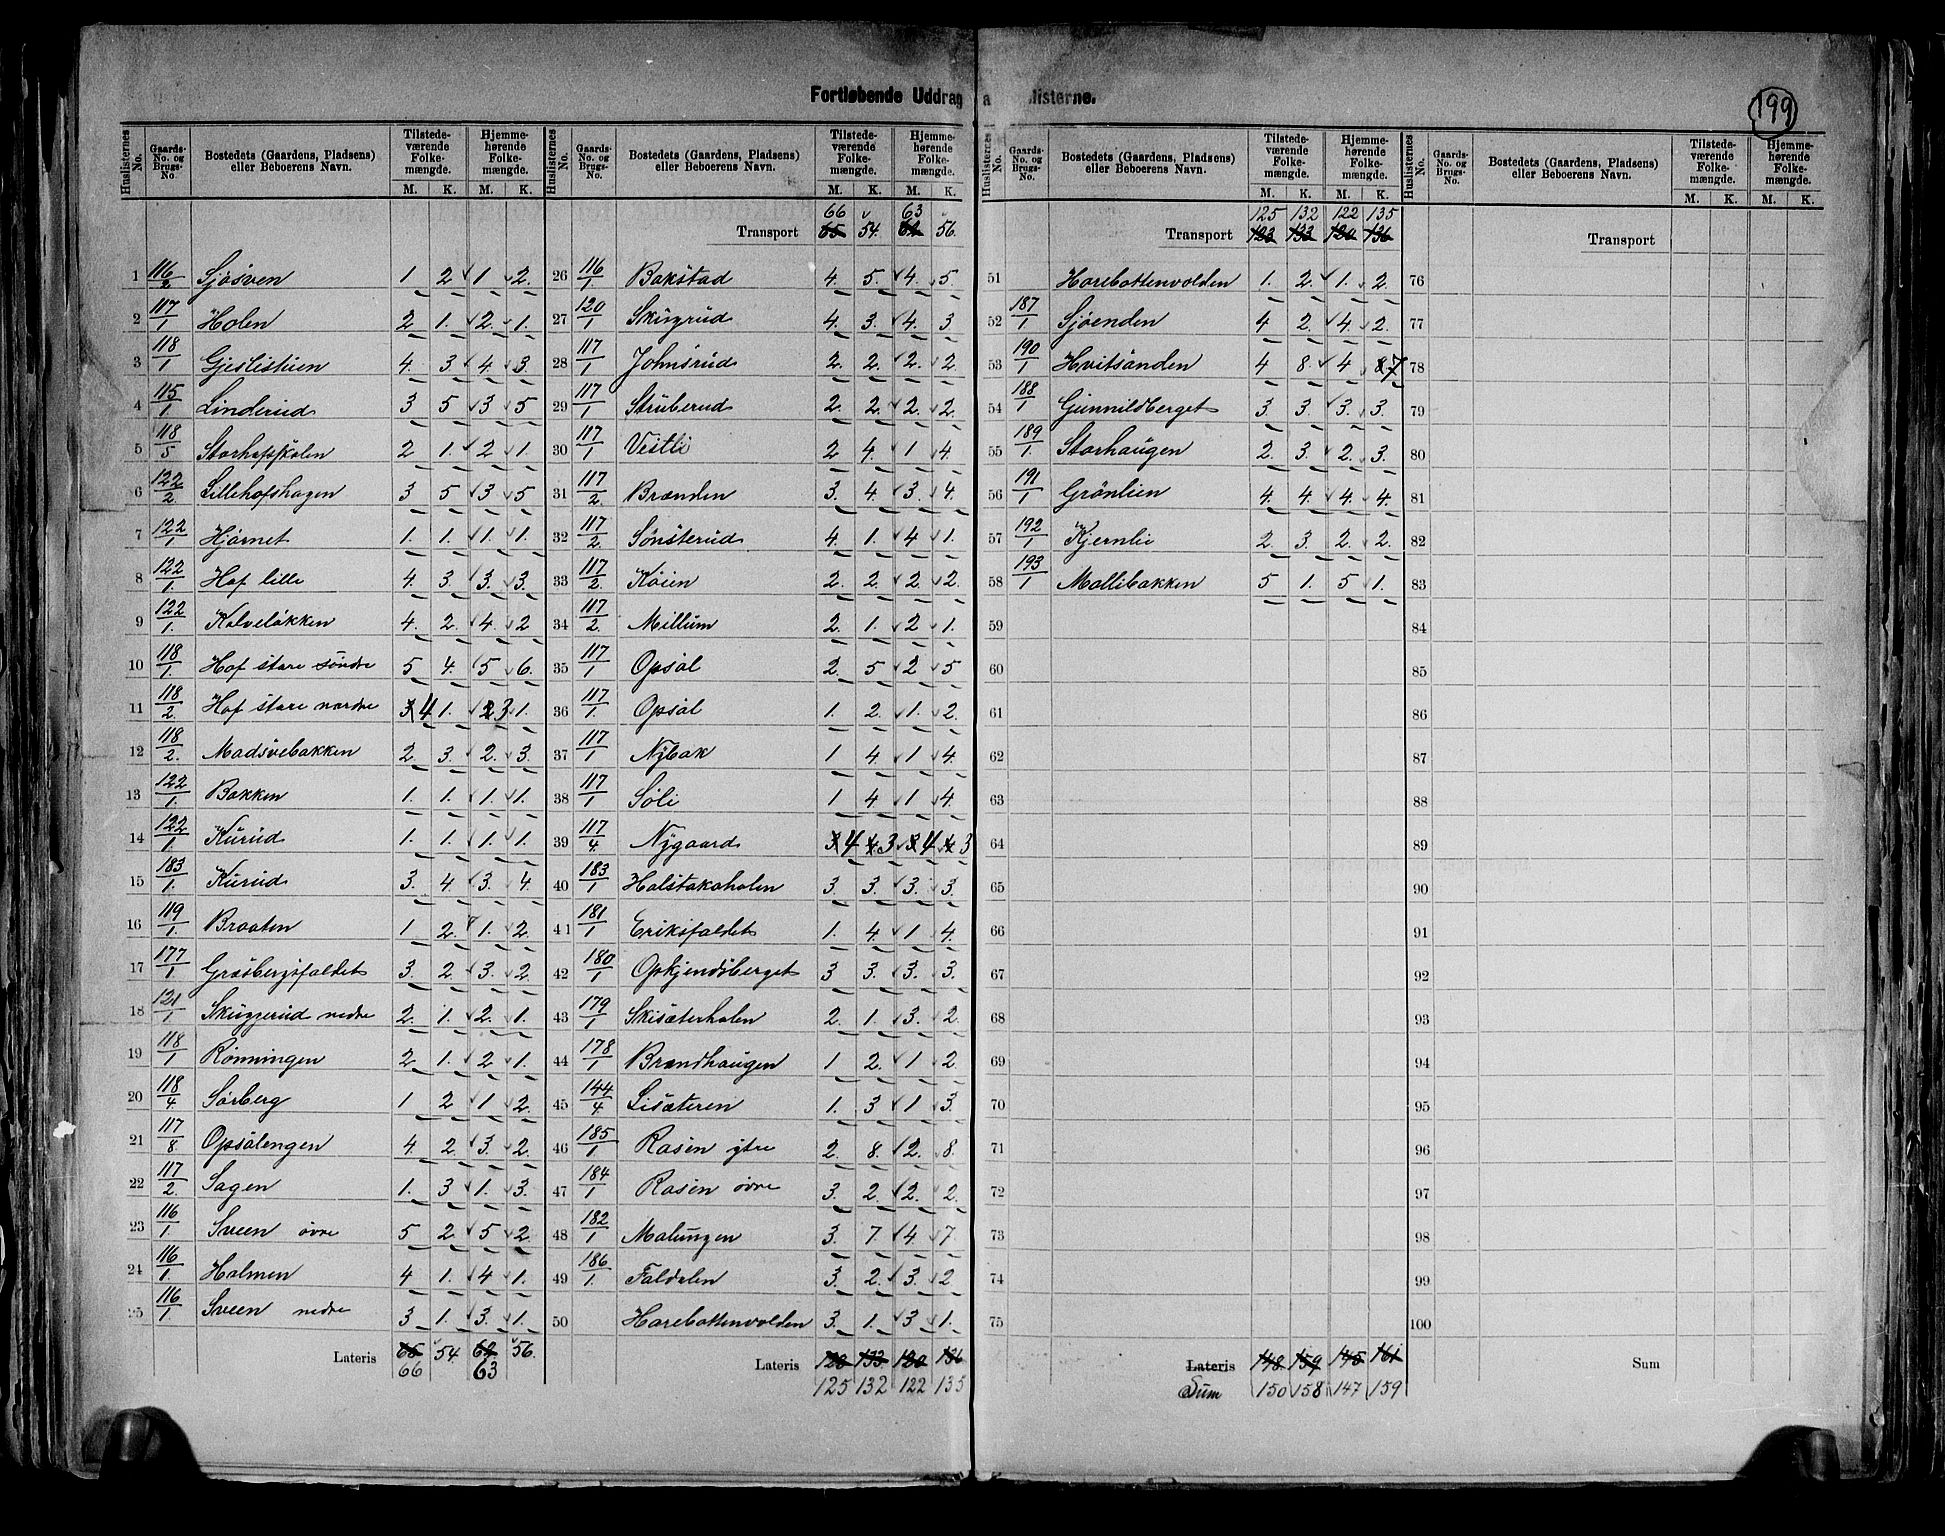 199
Fortløbende Uddrag a listerne.
Huslisternes No. Gaards-No. og Brugs-No. Bostedets (Gaardens, Pladsens) eller Beboerens Navn. Tilstedeværende Folkemængde. M. K. Hjemmehørende Folkemængde. M. K.
1 116/2 Sjøsven 1. 2 1. 2.
2 117/1 Holen 2 1. 2. 1.
3 118/1 Gjeslistuen 4. 3 4 3.
4 115/1. Linderud 3 5 3 5
5 118/5 Storhofsskolen 2 1. 2 1.
6 122/2. Lillehofshagen 3 5 3 5
7 122/1 Hjørnet 1. 1. 1. 1.
8 122/1. Hof lille 4. 3. 3. 3.
9 122/1. Kalveløkken 4. 2. 4. 2
10 118/1. Hof store søndre 5 4. 5 6.
11 118/2 Hof store nordre 3 4 1. 2 3 1.
12 118/2. Madsvebakken 2. 3. 2. 3.
13 122/1. Bakken 1. 1. 1. 1.
14 122/1. Kurud 1. 1. 1. 1.
15 183/1. Kurud 3. 4. 3. 4.
16 119/1. Braaten 1 2. 1. 2.
17 177/1 Græsbergsfaldet 3. 2. 3. 2.
18 121/1 Skuggerud nedre 2. 1. 2. 1.
19 118/1 Rønningen 2 1. 2 1.
20 118/4. Sørberg 1 2 1 2.
21 117/8 Opsalengen 4. 2. 3. 2.
22 117/2. Sagen 1. 3 1. 3.
23 116/1. Sveen øvre 5 2. 5 2.
24 116/1. Holmen 4 1. 4 1.
25 116/1. Sveen nedre 3 1. 3. 1.
Lateris 65 54. 62 56.
66 63
66 63
Transport 65 54. 62 56.
26 116/1 Bakstad 4. 5 4. 5.
27 120/1 Skugrud 4. 3. 4. 3
28 117/1 Johnsrud 2. 2. 2. 2
29 117/1 Struberud 2. 2. 2. 2.
30 117/1 Vestli 2 4. 1 4.
31 117/2 Brænden 3. 4. 3. 4.
32 117/2. Sønsterud 4. 1. 4 1.
33 117/2. Køien 2. 2. 2. 2.
34 117/2. Millum 2. 1. 2 1.
35 117/1 Opsal 2. 5 2 5
36 117/1. Opsal 1. 2. 1. 2.
37 117/1 Nybak 1 4. 1 4.
38 117/1 Søli 1 4 1 4.
39 117/4. Nygaard 3 4 4 3 3 4 4 3
40 183/1 Halstakaholen 3. 3. 3. 3.
41 181/1 Eriksfaldet 1. 4. 1 4.
42 180/1 Opkjendsberget 3 3. 3. 3.
43 179/1 Skisæterholen 2. 1. 3. 2.
44 178/1 Brandhaugen 1 2. 1 2
45 144/4 Lisæteren 1. 3 1 3.
46 185/1 Rasen ytre 2. 8. 2. 8.
47 184/1 Rasen øvre 3. 2. 2. 2.
48 182/1 Malungen 3. 7 4. 7
49 186/1. Faldalen 3. 2. 3. 2
50 Harebottenvolden 3. 1. 3 1.
Lateris 123 133 120 136
125 132 122 135
125 132 122 135
Transport 123 133 120 136
51 Harebottenvolden 1. 2. 1. 2.
52 187/1 Sjøenden 4 2. 4 2.
53 190/1 Hvitsanden 4 8. 4 8 7
54 188/1 Gunnildberget 3. 3. 3. 3.
55 189/1. Storhaugen 2. 3. 2. 3.
56 191/1 Grønlien 4. 4. 4. 4.
57 192/1 Kjernlie 2. 3. 2. 2.
58 193/1 Mallibakken 5 1. 5 1.
59
60
61
62
63
64
65
66
67
68
69
70
71
72
73
74
75
Lateris 148 159 145 161
Sum 150 158 147 159
Transport
76
77
78
79
80
81
82
83
84
85
86
87
88
89
90
91
92
93
94
95
96
97
98
99
100
Sum